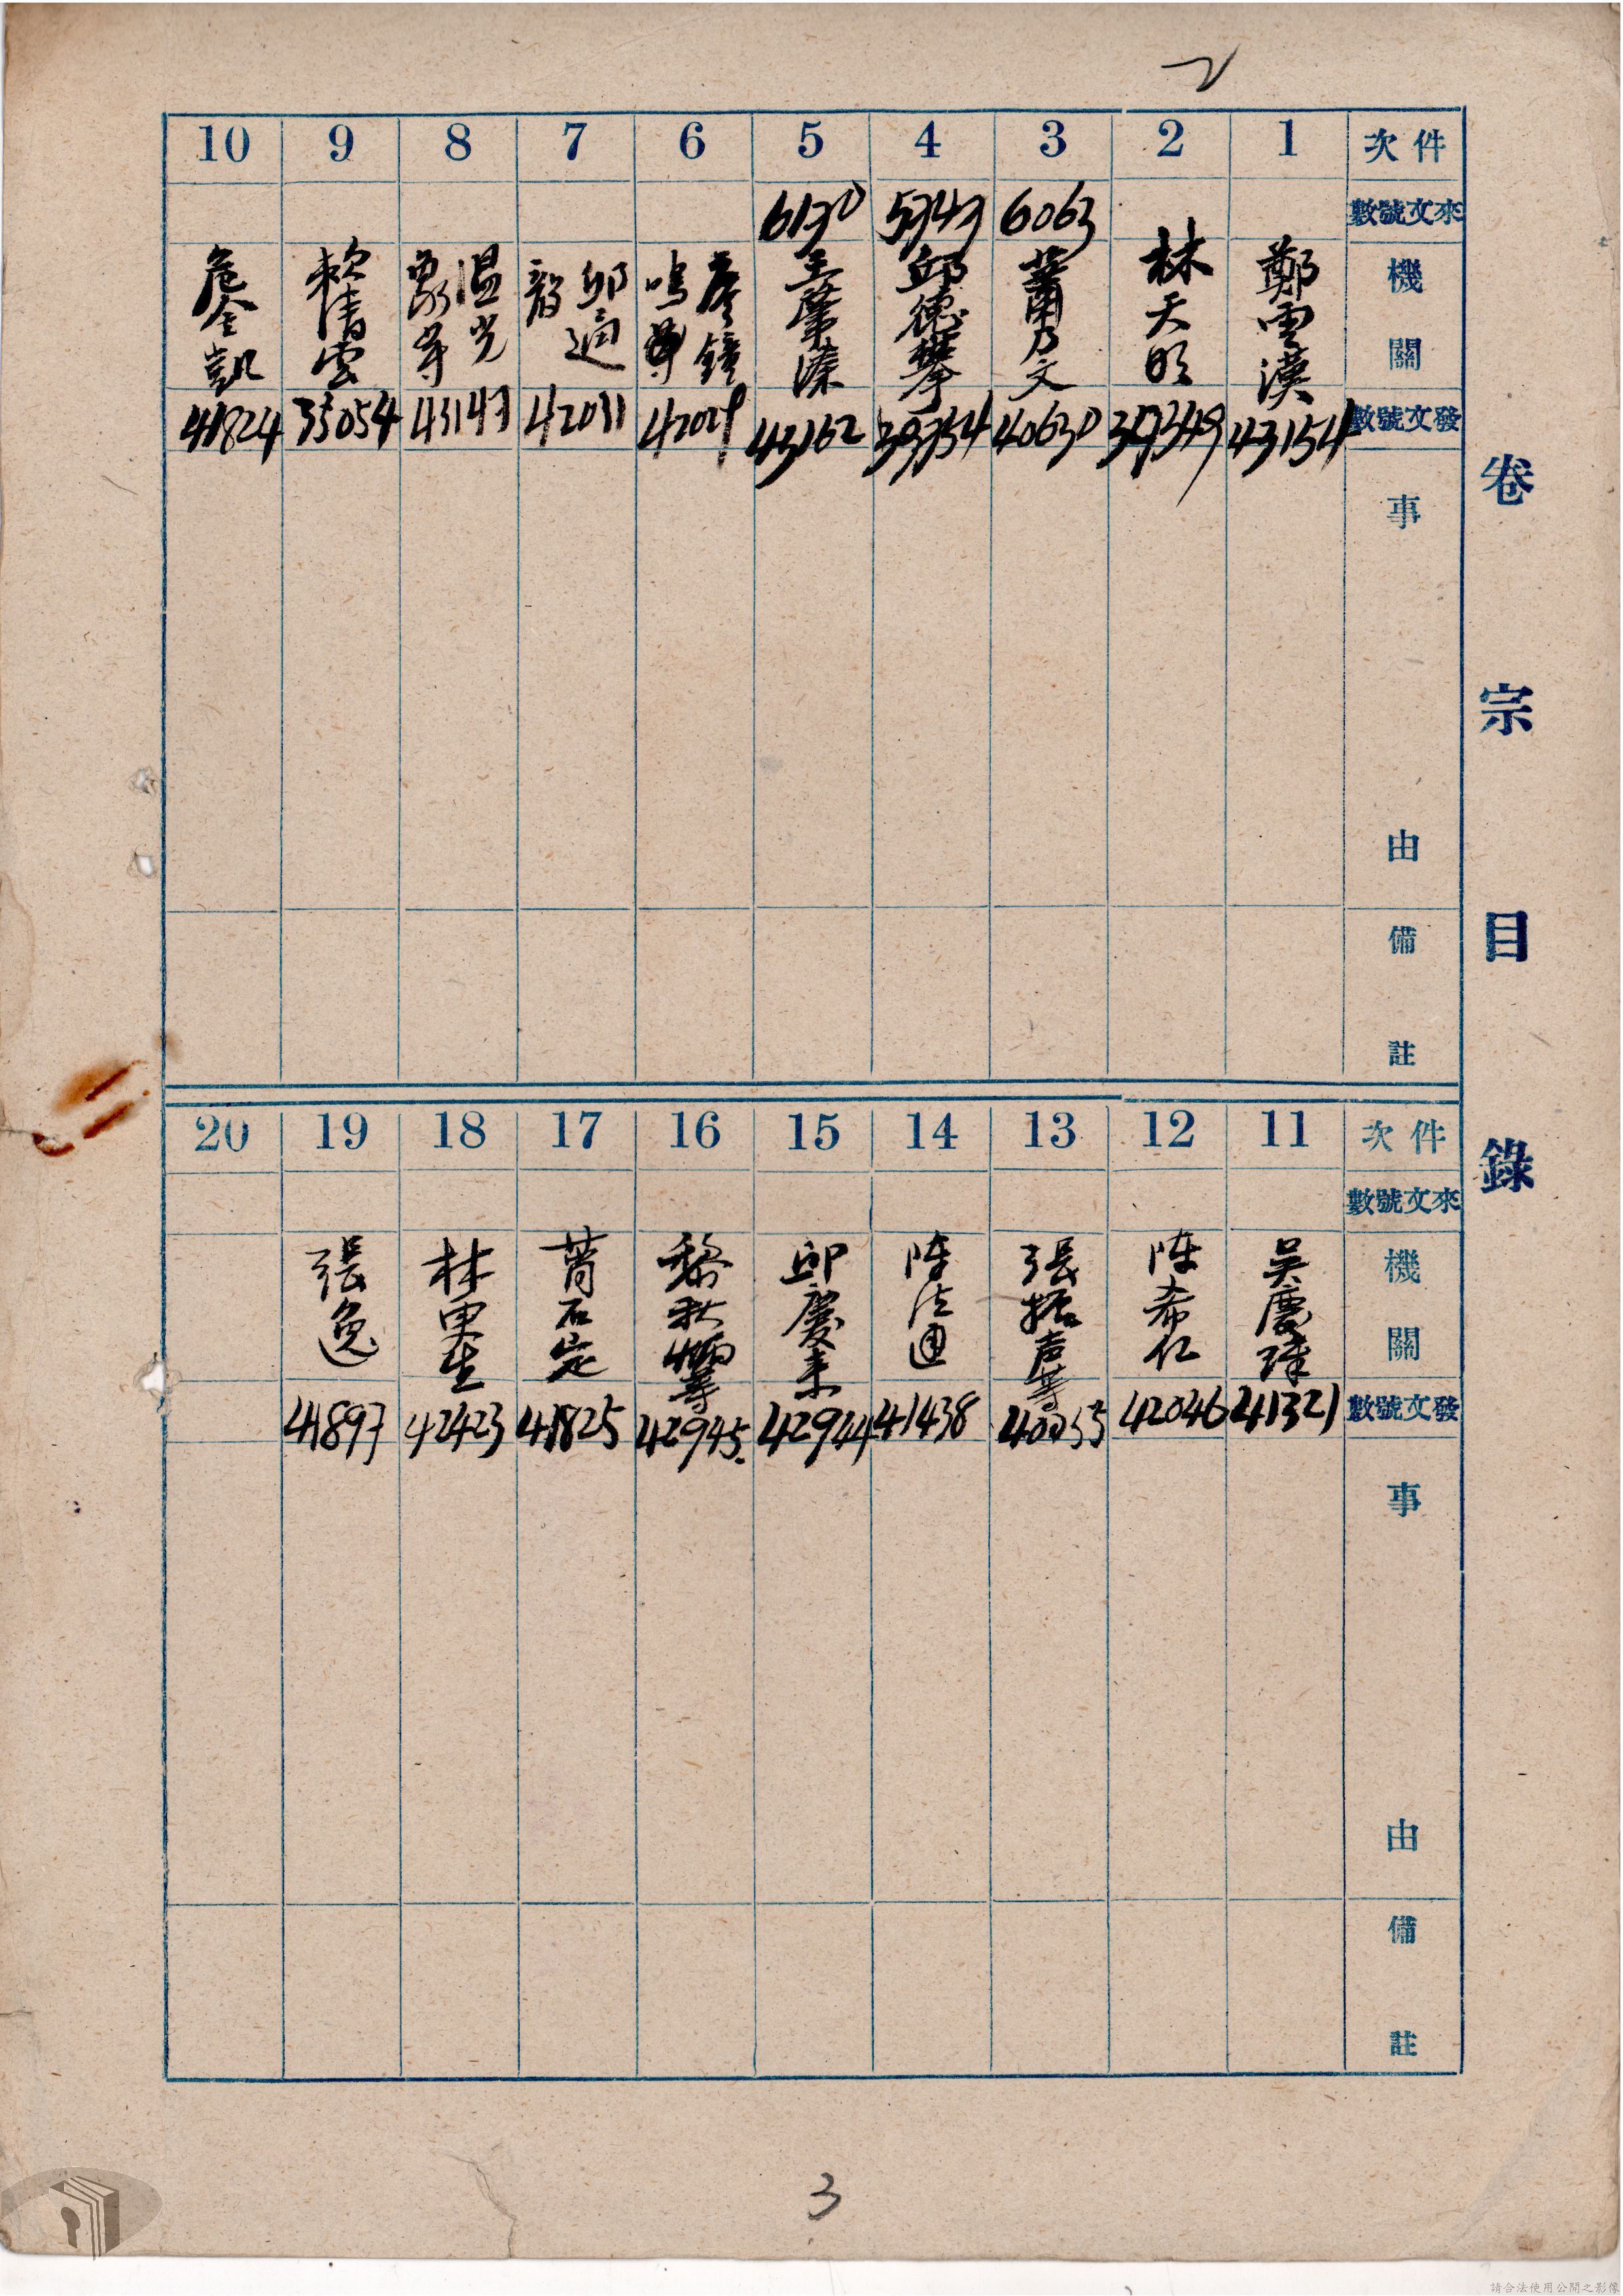 2
卷宗目錄
件次 1 2 3 4 5 6 7 8 9 10
來文號數 6063 5343 6130
機關
鄭雲漢
林天明
蕭乃文
邱德攀
王肇溱
廖鐘鳴等
邱迺韶
溫光等
賴清雲
詹金凱
發文號數 43154 39349 40630 39354 43162 42029 42031 43147 35054 41824
事由
備註
件次 11 12 13 14 15 16 17 18 19 20
來文號數
機關
吳慶璋
陳希仁
張振声等
陳法通
邱慶来
黎秋等
石定
林里生
張逸
發文號數 41321 42046 41438 42944 42945 41825 42423 41897
事由
備註
3
請合法使用公開之影像